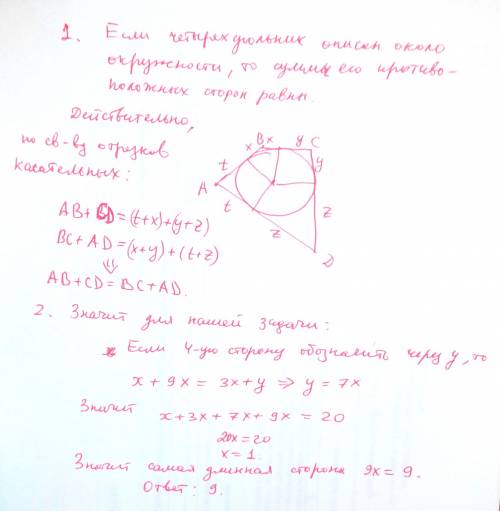 1. Если четырехугольник описан около
окружности, то суммы его противо-
положных сторон равны.
Действительно,
по св-ву отрезков
касательных:
B x y C
x y
t
A
t z
z
D
AB + CD = (t+x)+(y+z)
BC + AD = (x+y)+(t+z)
⇓
AB + CD = BC + AD.
2. Значит для нашей задачи:
Если 4-ую сторону обозначить через y, то
x + 9x = 3x + y ⇒ y = 7x
Значит x + 3x + 7x + 9x = 20
20x = 20
x = 1.
Значит самая длинная сторона 9x = 9.
Ответ: 9.